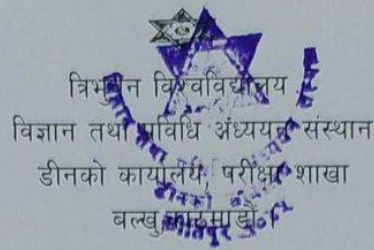 त्रिभुवन विश्वविद्यालय
विज्ञान तथा प्रविधि अध्ययन संस्थान
डीनको कार्यालय, परीक्षा शाखा
बल्खु काठमाडौं ।